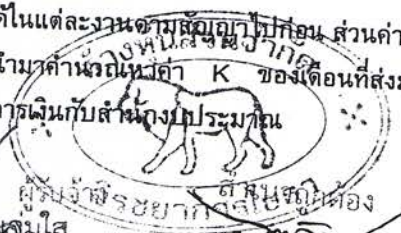 ได้ในแต่ละงานตามสัญญาไปก่อน ส่วนค่า
นำมาคำนวณหาค่า K ของเดือนที่ส่ง
การเงินกับสำนักงบประมาณ
ห้างหุ้นส่วนจำกัด
ผู้รับจ้าง
สำเนาถูกต้อง